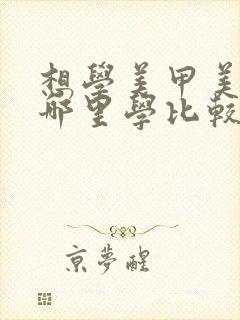 想學美甲美
哪里學比較
京夢醒